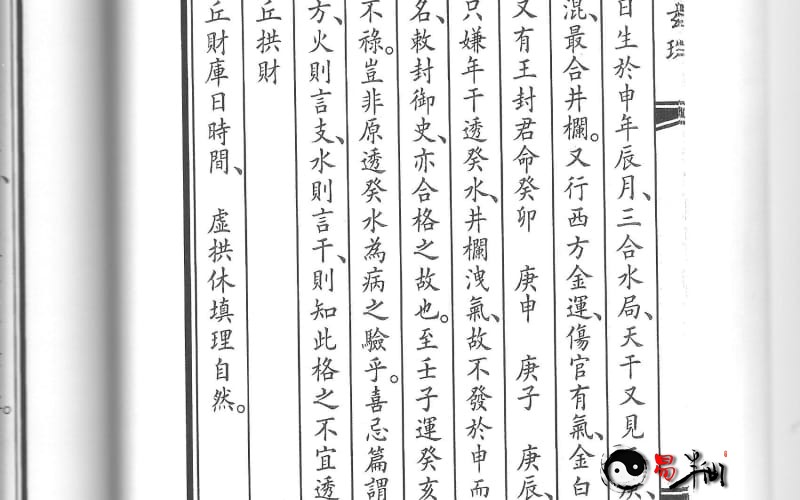 日生於申年辰月、三合水局、天干又見
混、最合井欄。又行西方金運、傷官有氣、金白
又有王封君命癸卯 庚申 庚子 庚辰、
只嫌年干透癸水、井欄洩氣、故不發於申而
名、敕封御史、亦合格之故也。至壬子運癸亥
不祿。豈非原透癸水為病之驗乎。喜忌篇謂
方、火則言支、水則言干、則知此格之不宜透
丘拱財
丘財庫日時間、 虛拱休填理自然。
易